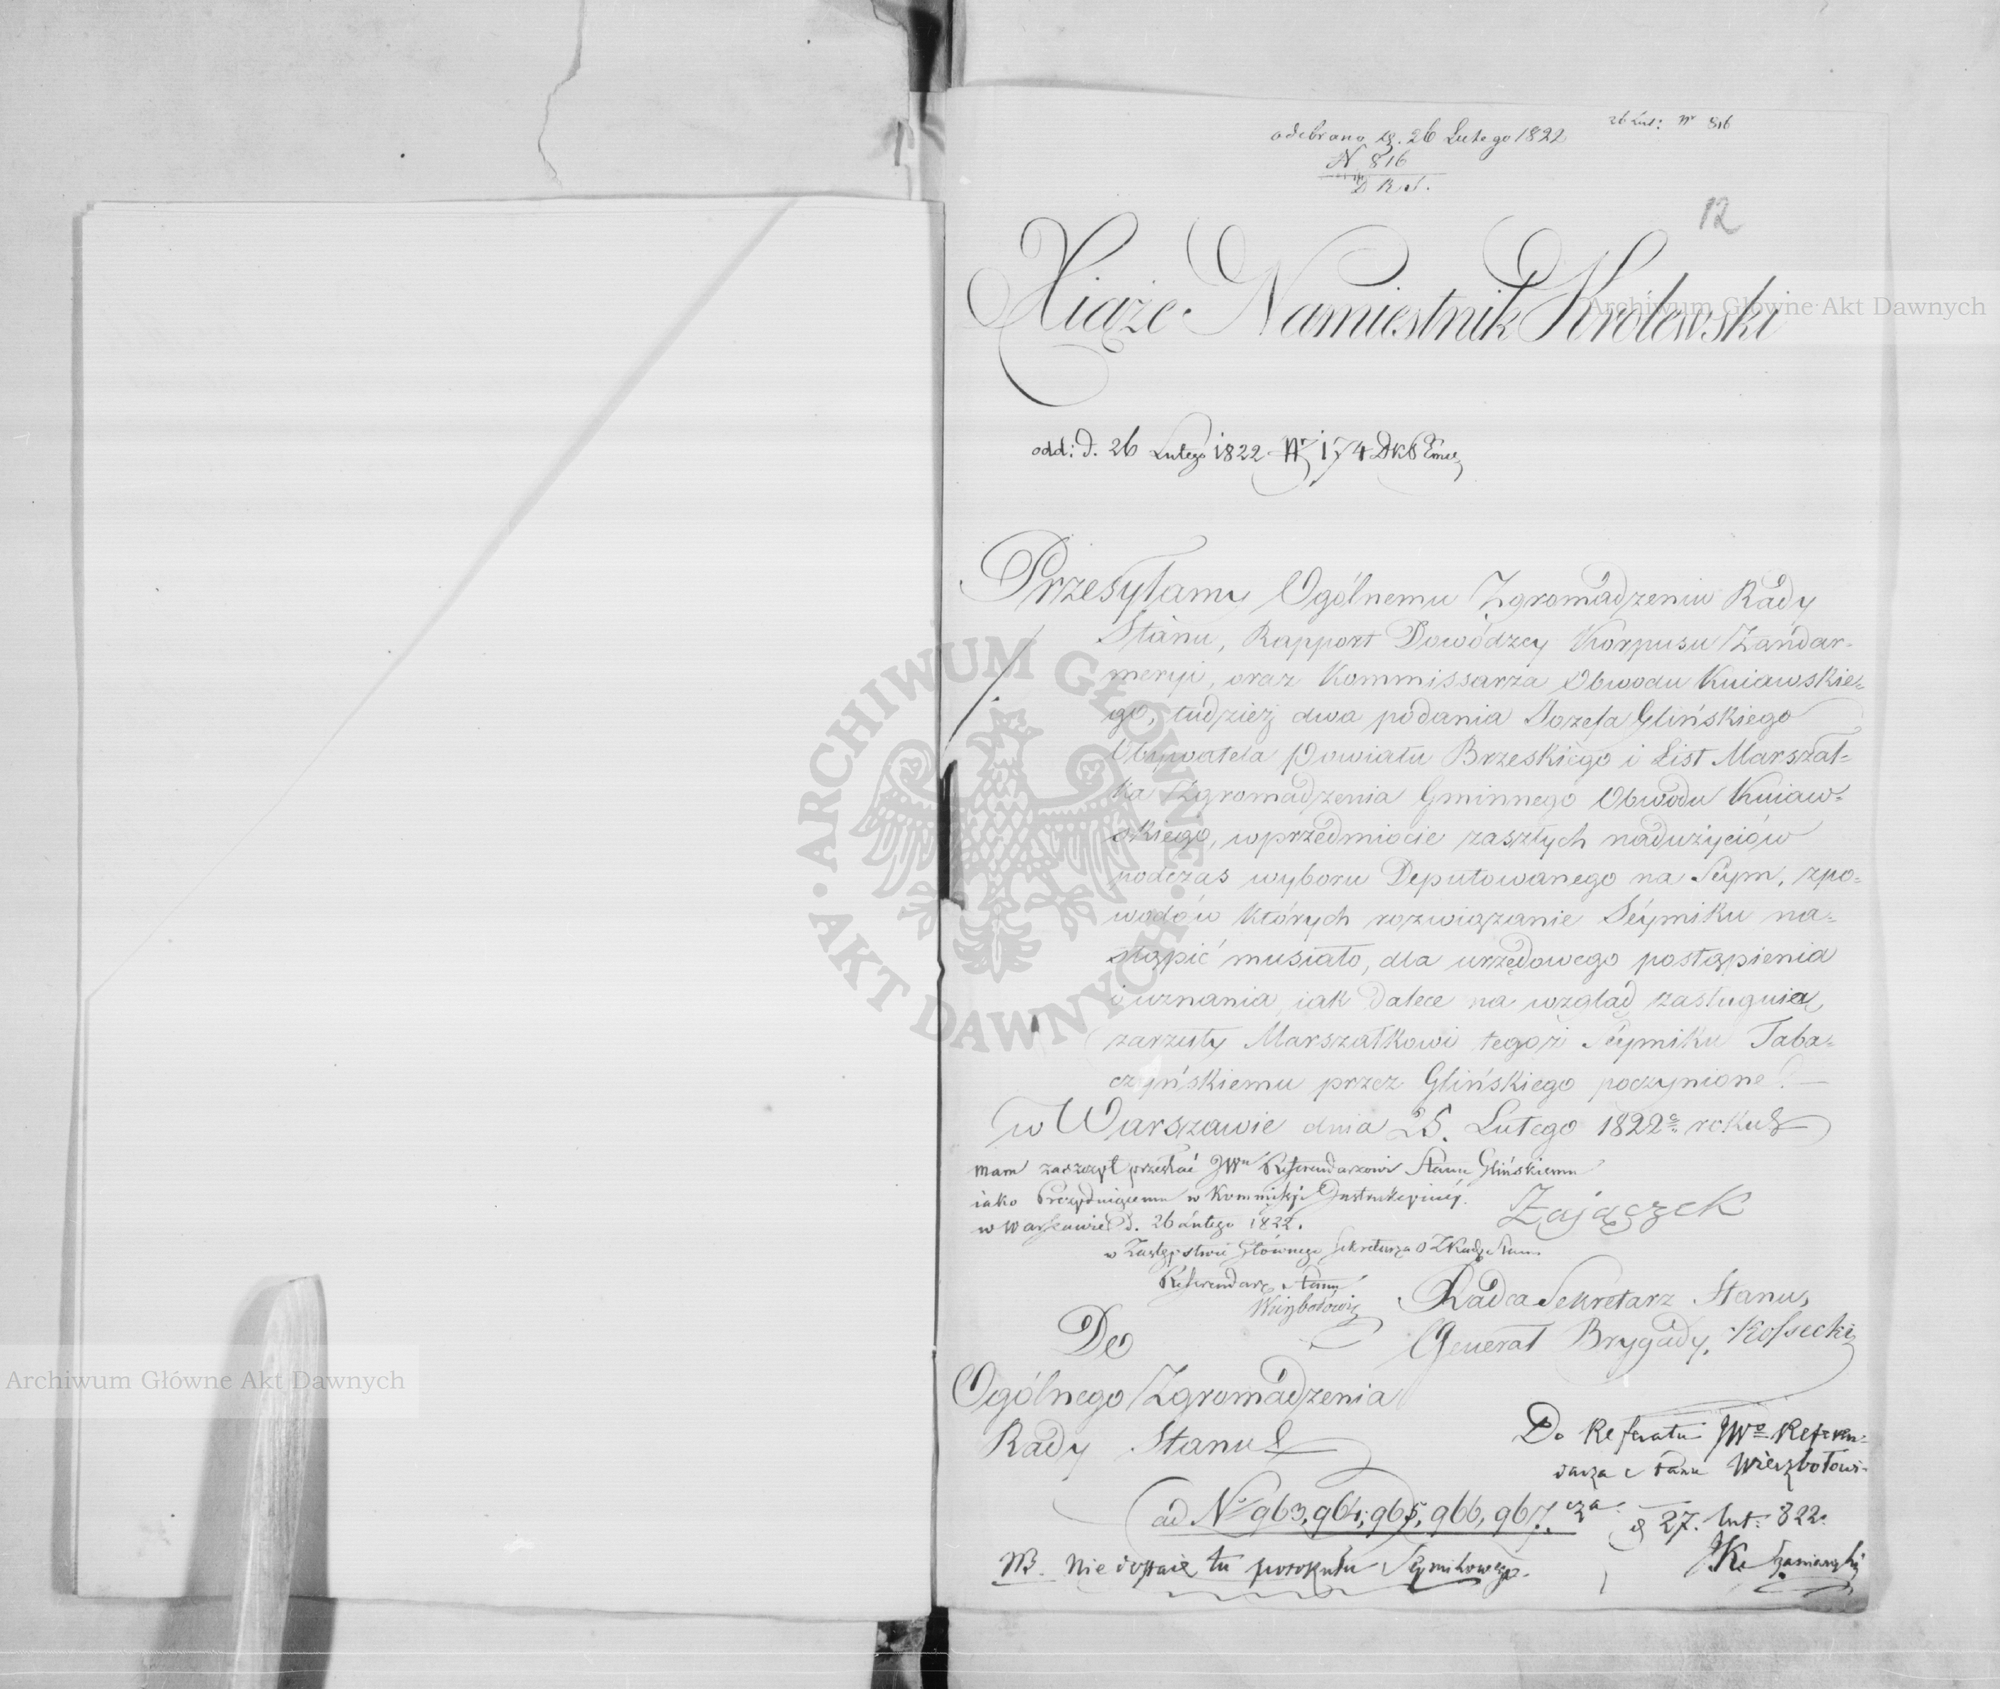 odebrano d. 26 Lutego 1822
26 Lut: Nr 816
N 816
D R S.
12
Xiąże Namiestnik Królewski
odd: d. 26 Lutego 1822 Nr 174
Przesyłamy Ogólnemu Zgromadzeniu Rady
Stanu, Rapport Dowódzcy Korpusu Żandar-
meryi, oraz Kommissarza Obwodu Kuiawskie-
go, tudzież dwa podania Jozefa Glińskiego
Obywatela Powiatu Brzeskiego i List Marszał-
ka Zgromadzenia Gminnego Obwodu Kuiaw-
skiego, wprzedmiocie zaszłych nadużyciów
podczas wyboru Deputowanego na Seym, zpo-
wodów których rozwiązanie Séymiku na-
stąpić musiało, dla urzędowego postąpienia
i uznania, iak dalece na wzgląd zasługuią
zarzuty Marszałkowi tegoż Séymiku Taba-
czyńskiemu przez Glińskiego poczynione.
w Warszawie dnia 25. Lutego 1822 roku
mam zaszczyt przesłać JWu Referendarzowi Stanu Glińskiemu
iako Prezyduiącemu w Kommissyi Instrukcyinéy.
w Warszawie d. 26 Lutego 1822.
Zajączek
w Zastępstwie Głównego Sekretarza O Z Rady Stanu
Referendarz Stanu
Wierzbołowicz
Radca Sekretarz Stanu,
Generał Brygady, Kossecki
Do
Ogólnego Zgromadzenia
Rady Stanu
Do Referatu JWo Referen-
darza Stanu Wierzbołowi-
cza d 27. Lut: 822.
ad No 963, 964, 965, 966, 967.
NB. Nie dostaie tu protokułu Seymikowego.
Archiwum Główne Akt Dawnych
Archiwum Główne Akt Dawnych
· ARCHIWUM GŁÓWNE · AKT DAWNYCH